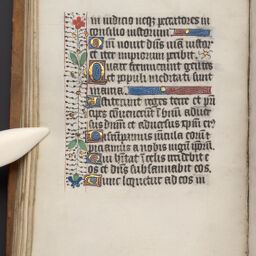 in iudicio neqз peccatores in
consilio iustorum
Qm nouit dns uia iustor
et iter impiorum peribit
Quare fremuerunt gentes
et populi meditati sunt
inania
Astiterunt reges terre et pn
cipes conuenerut i unu aduer
sus dnm et aduersus xpm ei9
Disrupamus uincula eorum et
proiciamus a nobis iugu ipsoru
Qui habitat i celis irridebit e
os et dns subsannabit eos
Tunc loquetur ad eos in